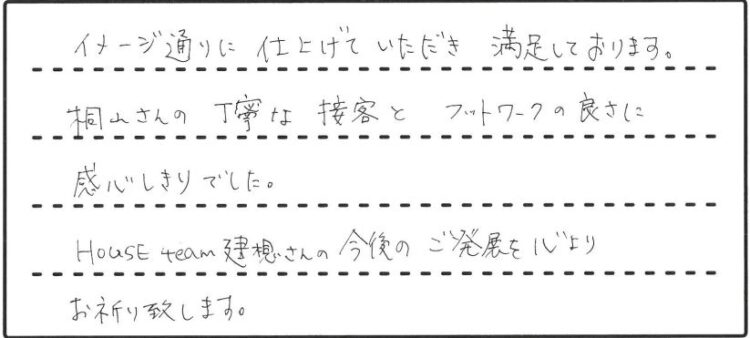 イメージ通りに仕上げていただき 満足しております。
桐山さんの丁寧な接客と フットワークの良さに
感心しきりでした。
HousE team 建想さんの今後のご発展を心より
お祈り致します。